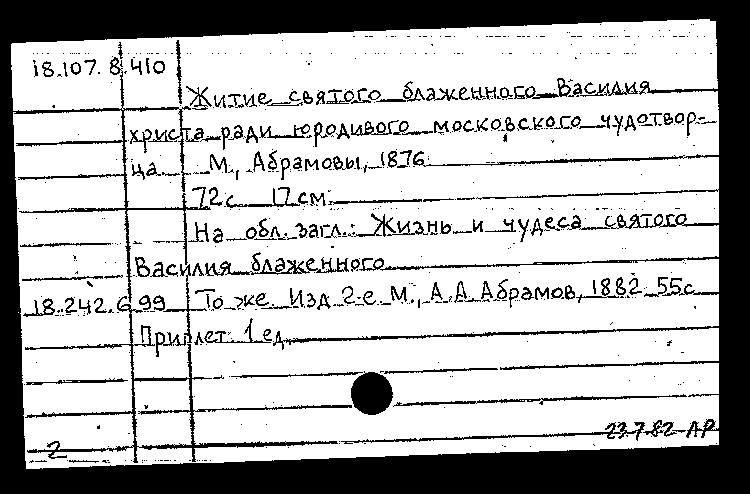 18.107.8.410
Житие святого блаженного Василия
христа ради юродивого московского чудотвор-
ца М., Абрамовы, 1876
72с 17см.
На обл. загл.: Жизнь и чудеса святого
Василия блаженного
18.242.6.99 То же. Изд. 2-е. М., А.А. Абрамов, 1882. 55с
Приплет. 1 ед.
23.7.82 АР
2